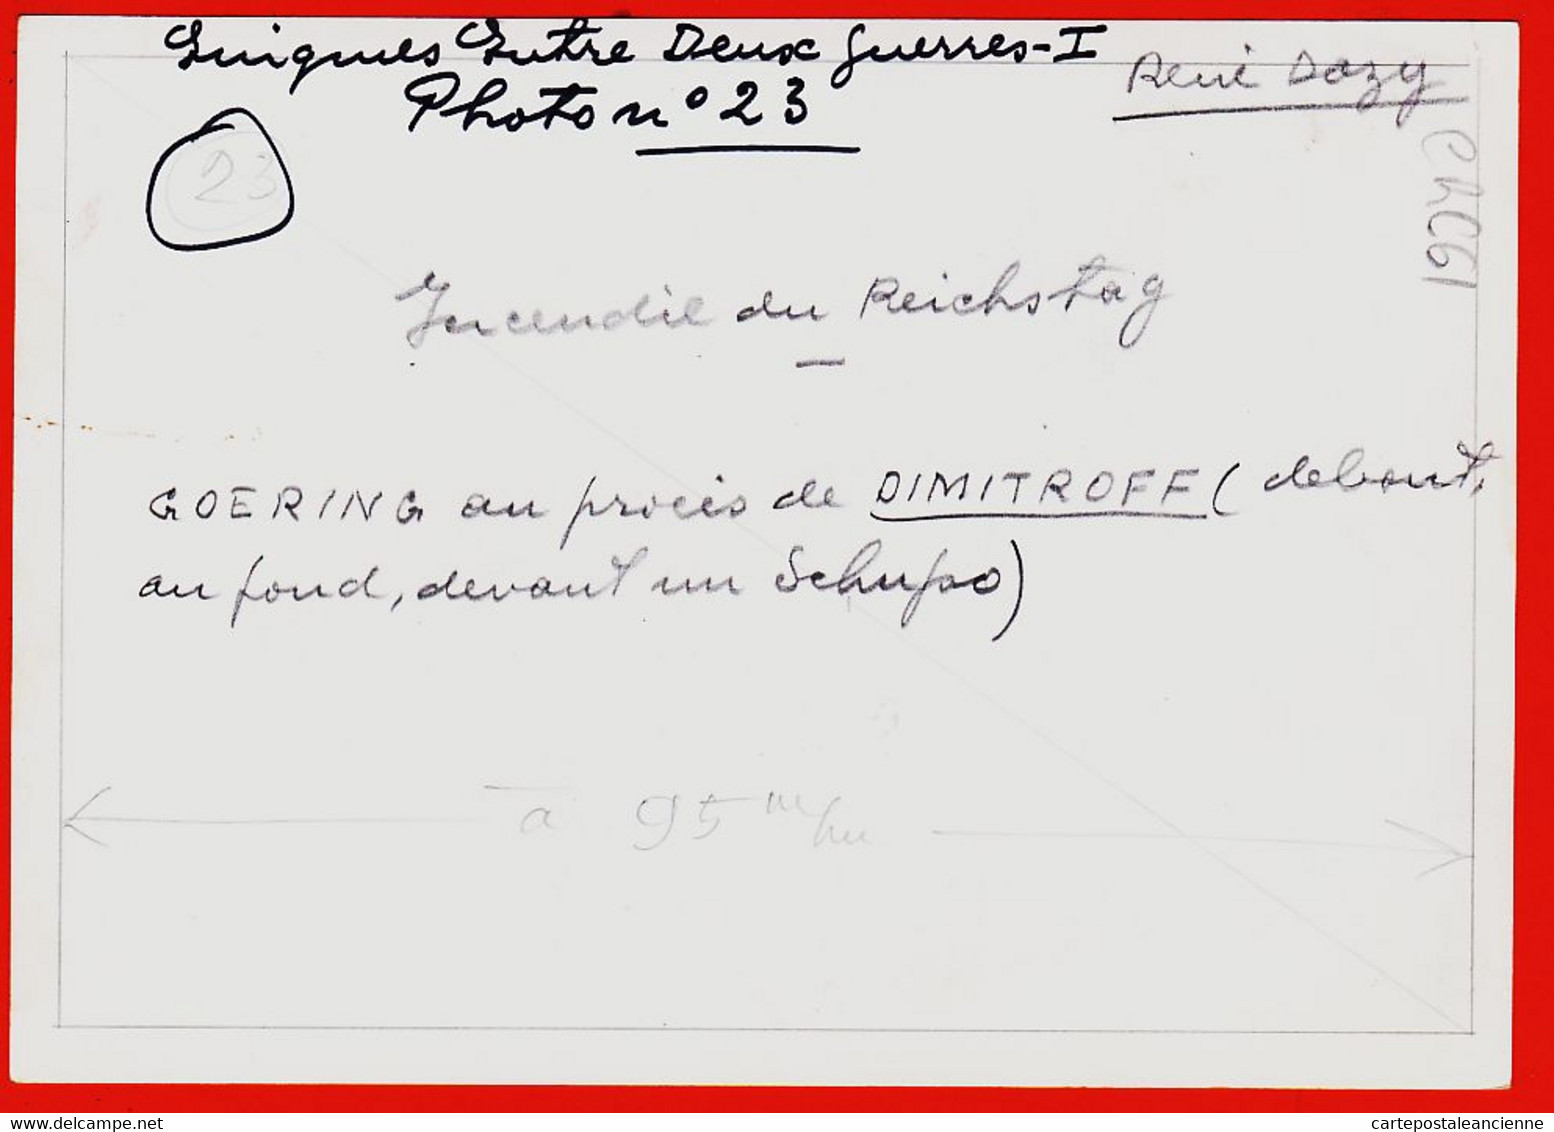 Enigmes Entre Deux Guerres-I
Photo n° 23
René Dazy
23
Incendie du Reichstag
GOERING au procès de DIMITROFF (debout,
au fond, devant un Schupo)
à 95 m/m
cartepostaleancienne